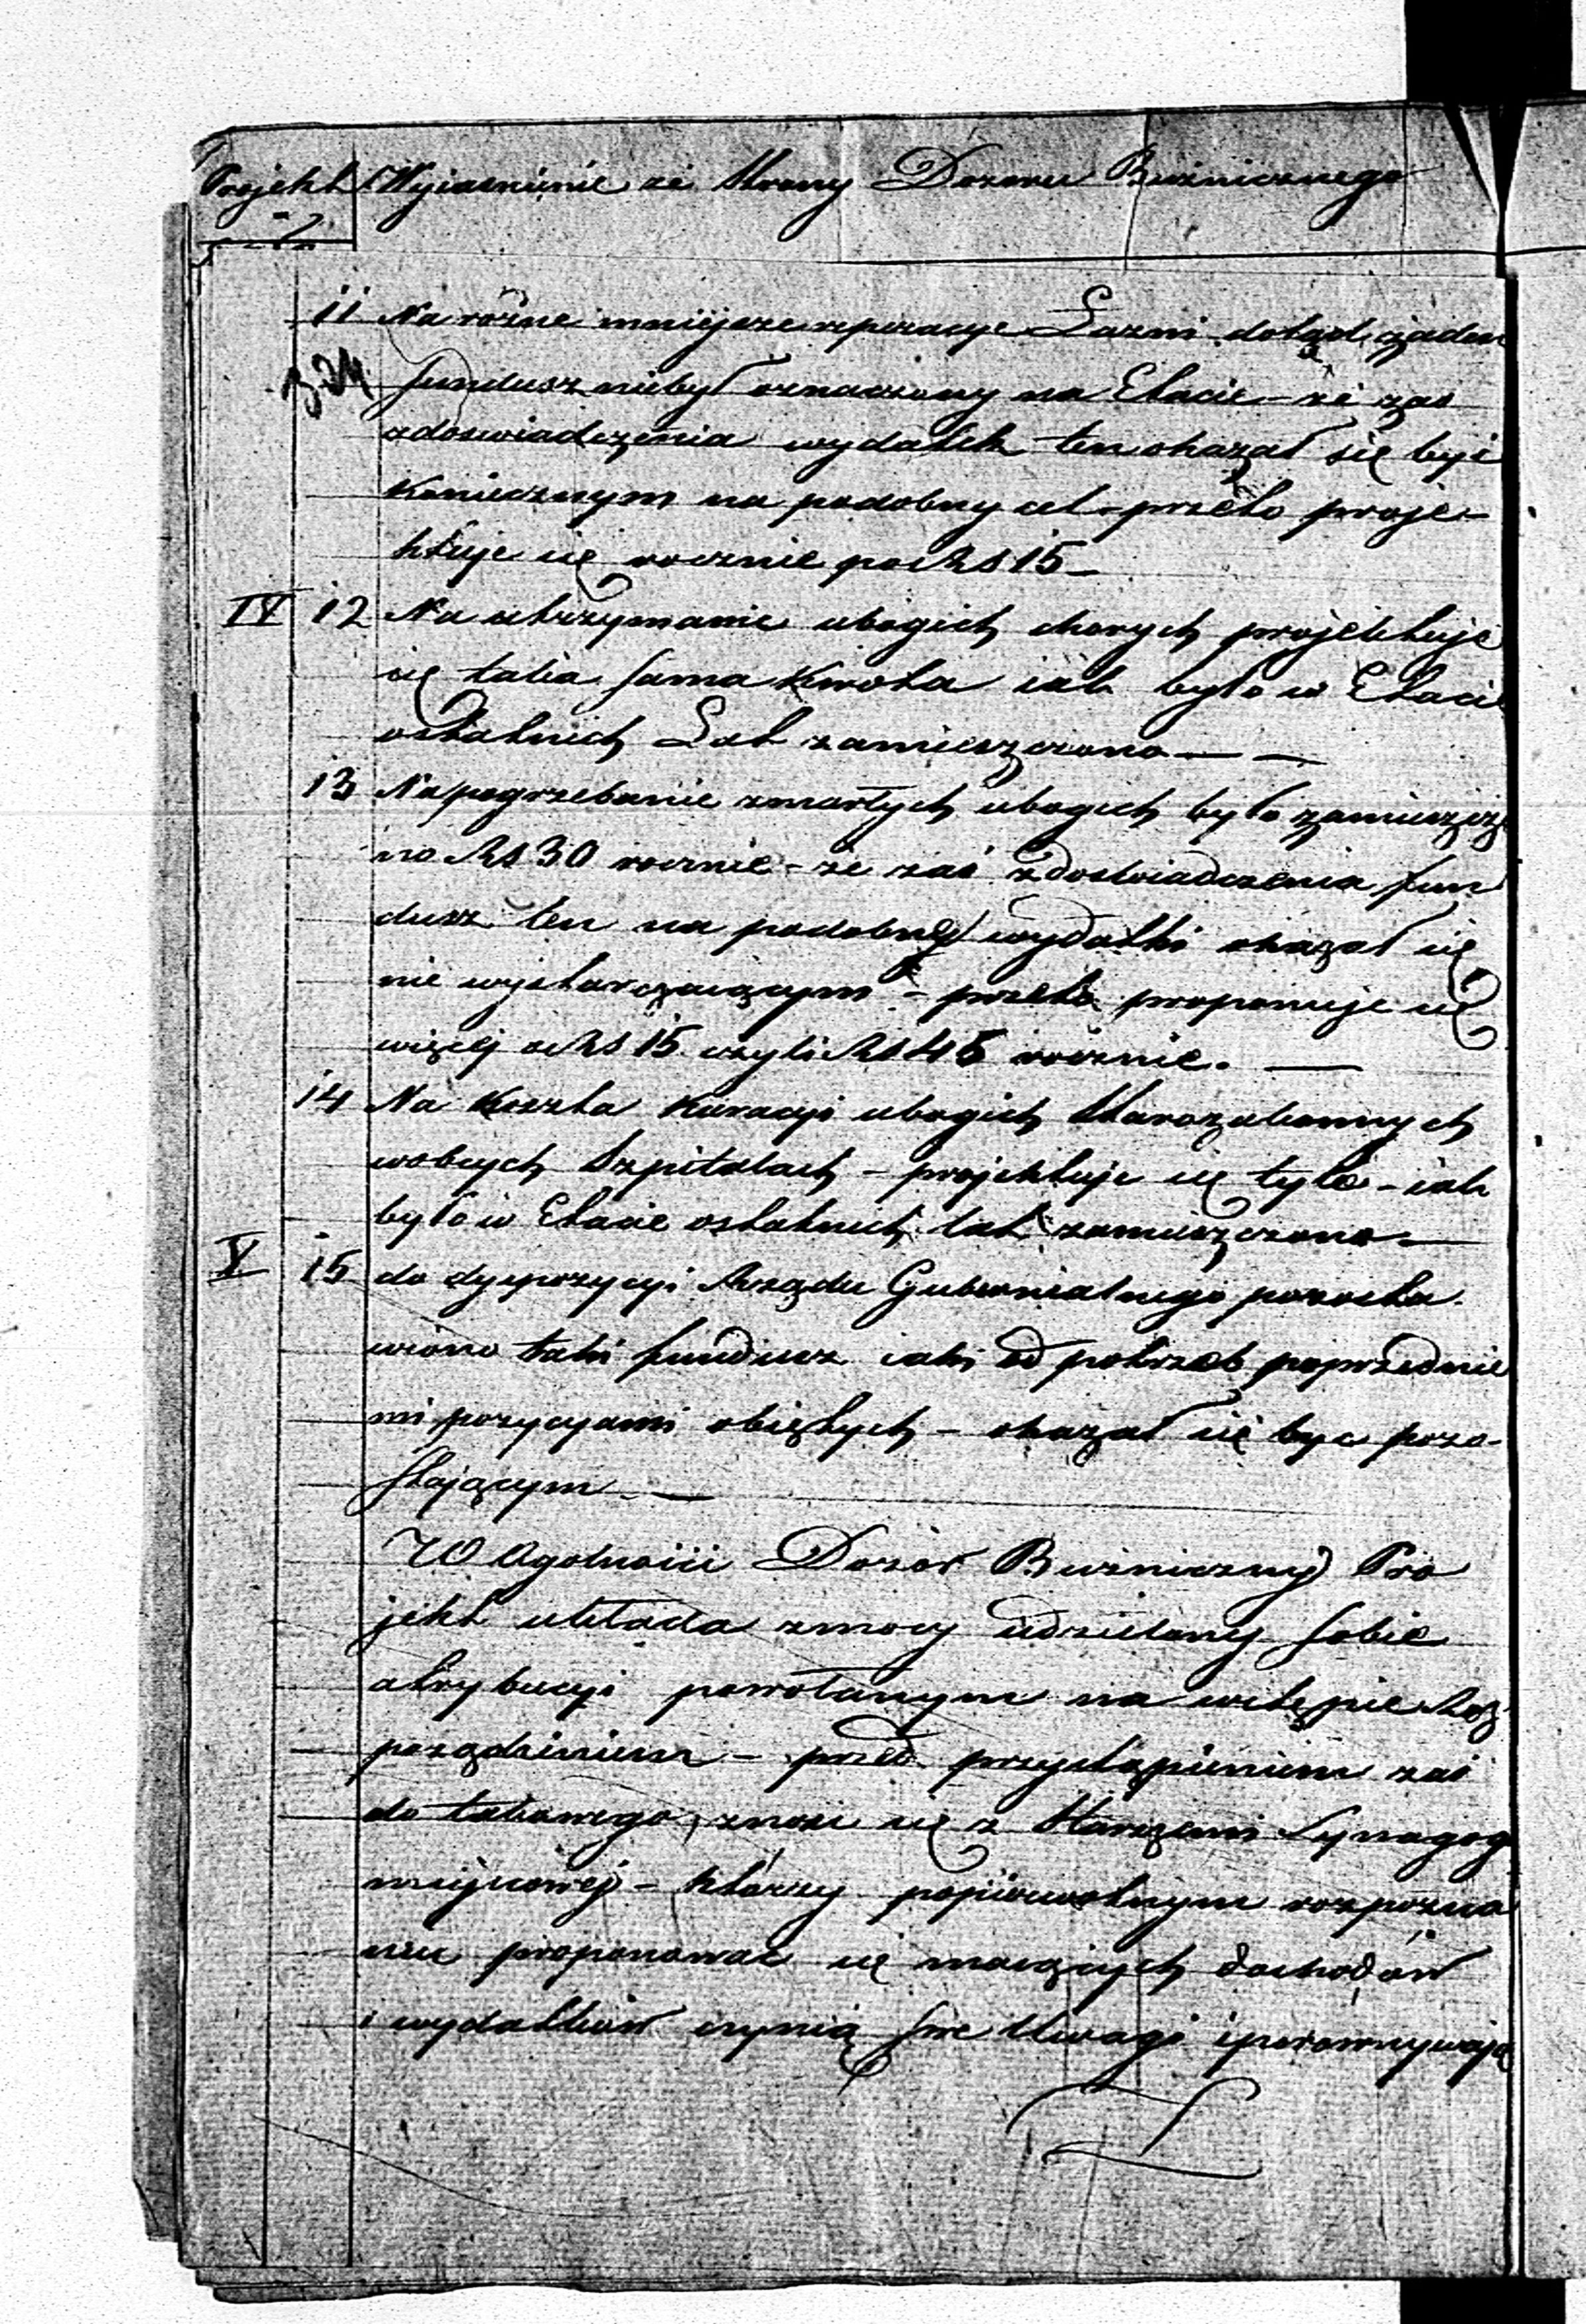 Projekt Wyiasnienie ze Strony Dozoru Bużnicznego
11 Na różne mniejsze reperacye Łazni dotąd żaden
324 fundusz niebył oznaczony na Etacie – że zas
zdoswiadczenia wydatek ten okazał się być
koniecznym na podobny cel – przeto proje-
ktuje się rocznie po Rs 15 –
IV 12 Na utrzymanie ubogich chorych projektuje
się takia sama kwota iak było w Etacie
ostatnich Lat zamieszczono —
13 Na pogrzebanie zmarłych ubogich było zamieszczo
no Rs 30 rocznie – że zaś zdoświadczenia fun
dusz ten na podobny wydatki okazał się
nie wystarczaiącym – przeto proponuje się
więcej o Rs 15 czyli Rs 45 rocznie. —
14 Na koszta kuracyi ubogich Starozakonnych
wobcych Szpitalach – projektuje się tyle – iak
było w Etacie ostatnich lat zamieszczono —
V 15 do dyspozycyi Rządu Gubernialnego pozosta-
wiono taki fundusz iaki od potrzeb poprzednie
mi pozycyami obiętych – okazał się byc pozo-
stającym —
W Ogolnosci Dozór Bużniczny Pro
jekt układa zmocy udzielony sobie
atrybucyi powołanym na wstępie Roz
porządzeniem – przed przystąpieniem zaś
do takowego znosi się z Starszemi Synagogi
miejscowej – którzy popierwotnym rozpozna
niu proponować się maiących dochodów
i wydatków czynią swe Uwagi i porownywają